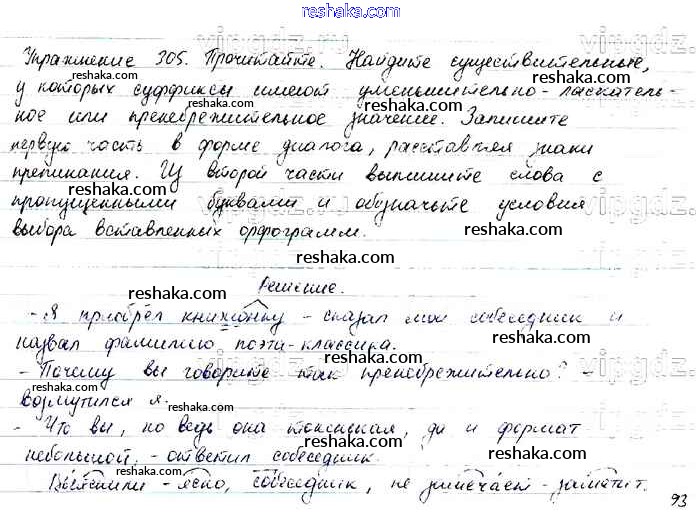 reshaka.com
Упражнение 305. Прочитайте. Найдите существительные,
reshaka.com reshaka.com
у которых суффиксы имеют уменьшительно-ласкатель-
ное или пренебрежительное значение. Запишите
reshaka.com reshaka.com
первую часть в форме диалога, расставляя знаки
препинания. Из второй части выпишите слова с
reshaka.com reshaka.com
пропущенными буквами и обозначьте условия
выбора вставленных орфограмм.
reshaka.com reshaka.com
Решение.
reshaka.com reshaka.com
- Я приобрёл книжонку - сказал мой собеседник и
назвал фамилию поэта-классика.
reshaka.com reshaka.com
- Почему вы говорите так пренебрежительно? -
возмутился я.
reshaka.com reshaka.com
- Что вы, но ведь она тоненькая, да и формат
небольшой, - ответил собеседник.
reshaka.com reshaka.com
Выяснили - ясно, собеседник, не замечает - заметит.
93